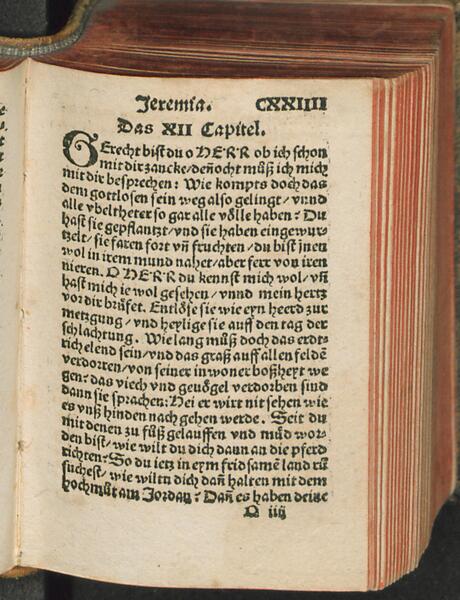 Jeremia. CXXIIII
Das XII Capitel.
GErecht bist du o HERR ob ich schon
mit dir zancke/deñocht můß ich mich
mit dir besprechen: Wie kompts doch das
dem gottlosen sein weg also gelingt/vnnd
alle vbeltheter so gar alle völle haben? Du
hast sie gepflantzt/vnd sie haben eingewur-
tzelt/sie faren fort vñ fruchten/du bist jnen
wol in irem mund nahet/aber ferr von iren
nieren. O HERR du kennst mich wol/vñ
hast mich ie wol gesehen/vnnd mein hertz
vor dir brüfet. Entlöse sie wie eyn heerd zur
metzgung/vnd heylige sie auff den tag der
schlachtung. Wie lang můß doch das erdt-
rich elend sein/vnd das graß auff allen feldẽ
verdorren/von seiner inwoner boßheyt we
gen? das viech vnd geuögel verdorben sind
dann sie sprachen: Hei er wirt nit sehen wie
es vnß hinden nach gehen werde. Seit du
mit denen zu fůß gelauffen vnd můd wor-
den bist/wie wilt du dich dann an die pferd
richten? So du ietz in eym fridsamẽ land rů
suchest/wie wiltu dich dañ halten mit dem
hochmůt am Jordan? Dañ es haben deine
Q iiij